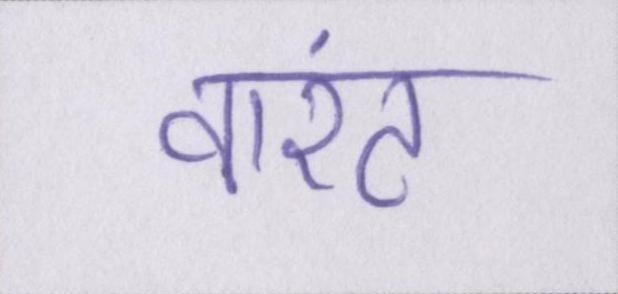 वारंट